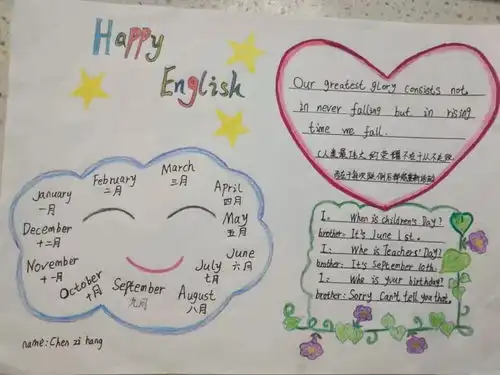 Happy
English
Our greatest glory consists not
in never falling but in rising
time we fall.
January
一月
February
二月
March
三月
April
四月
May
五月
June
六月
July
七月
August
八月
September
九月
October
十月
November
十一月
December
十二月
I: When is children's Day?
brother: It's June 1st.
I: Whe is Teachers' Day?
brother: It's September 10th.
I: Whe is your birthday?
brother: Sorry Can't tell you that.
name: Chen zi hang